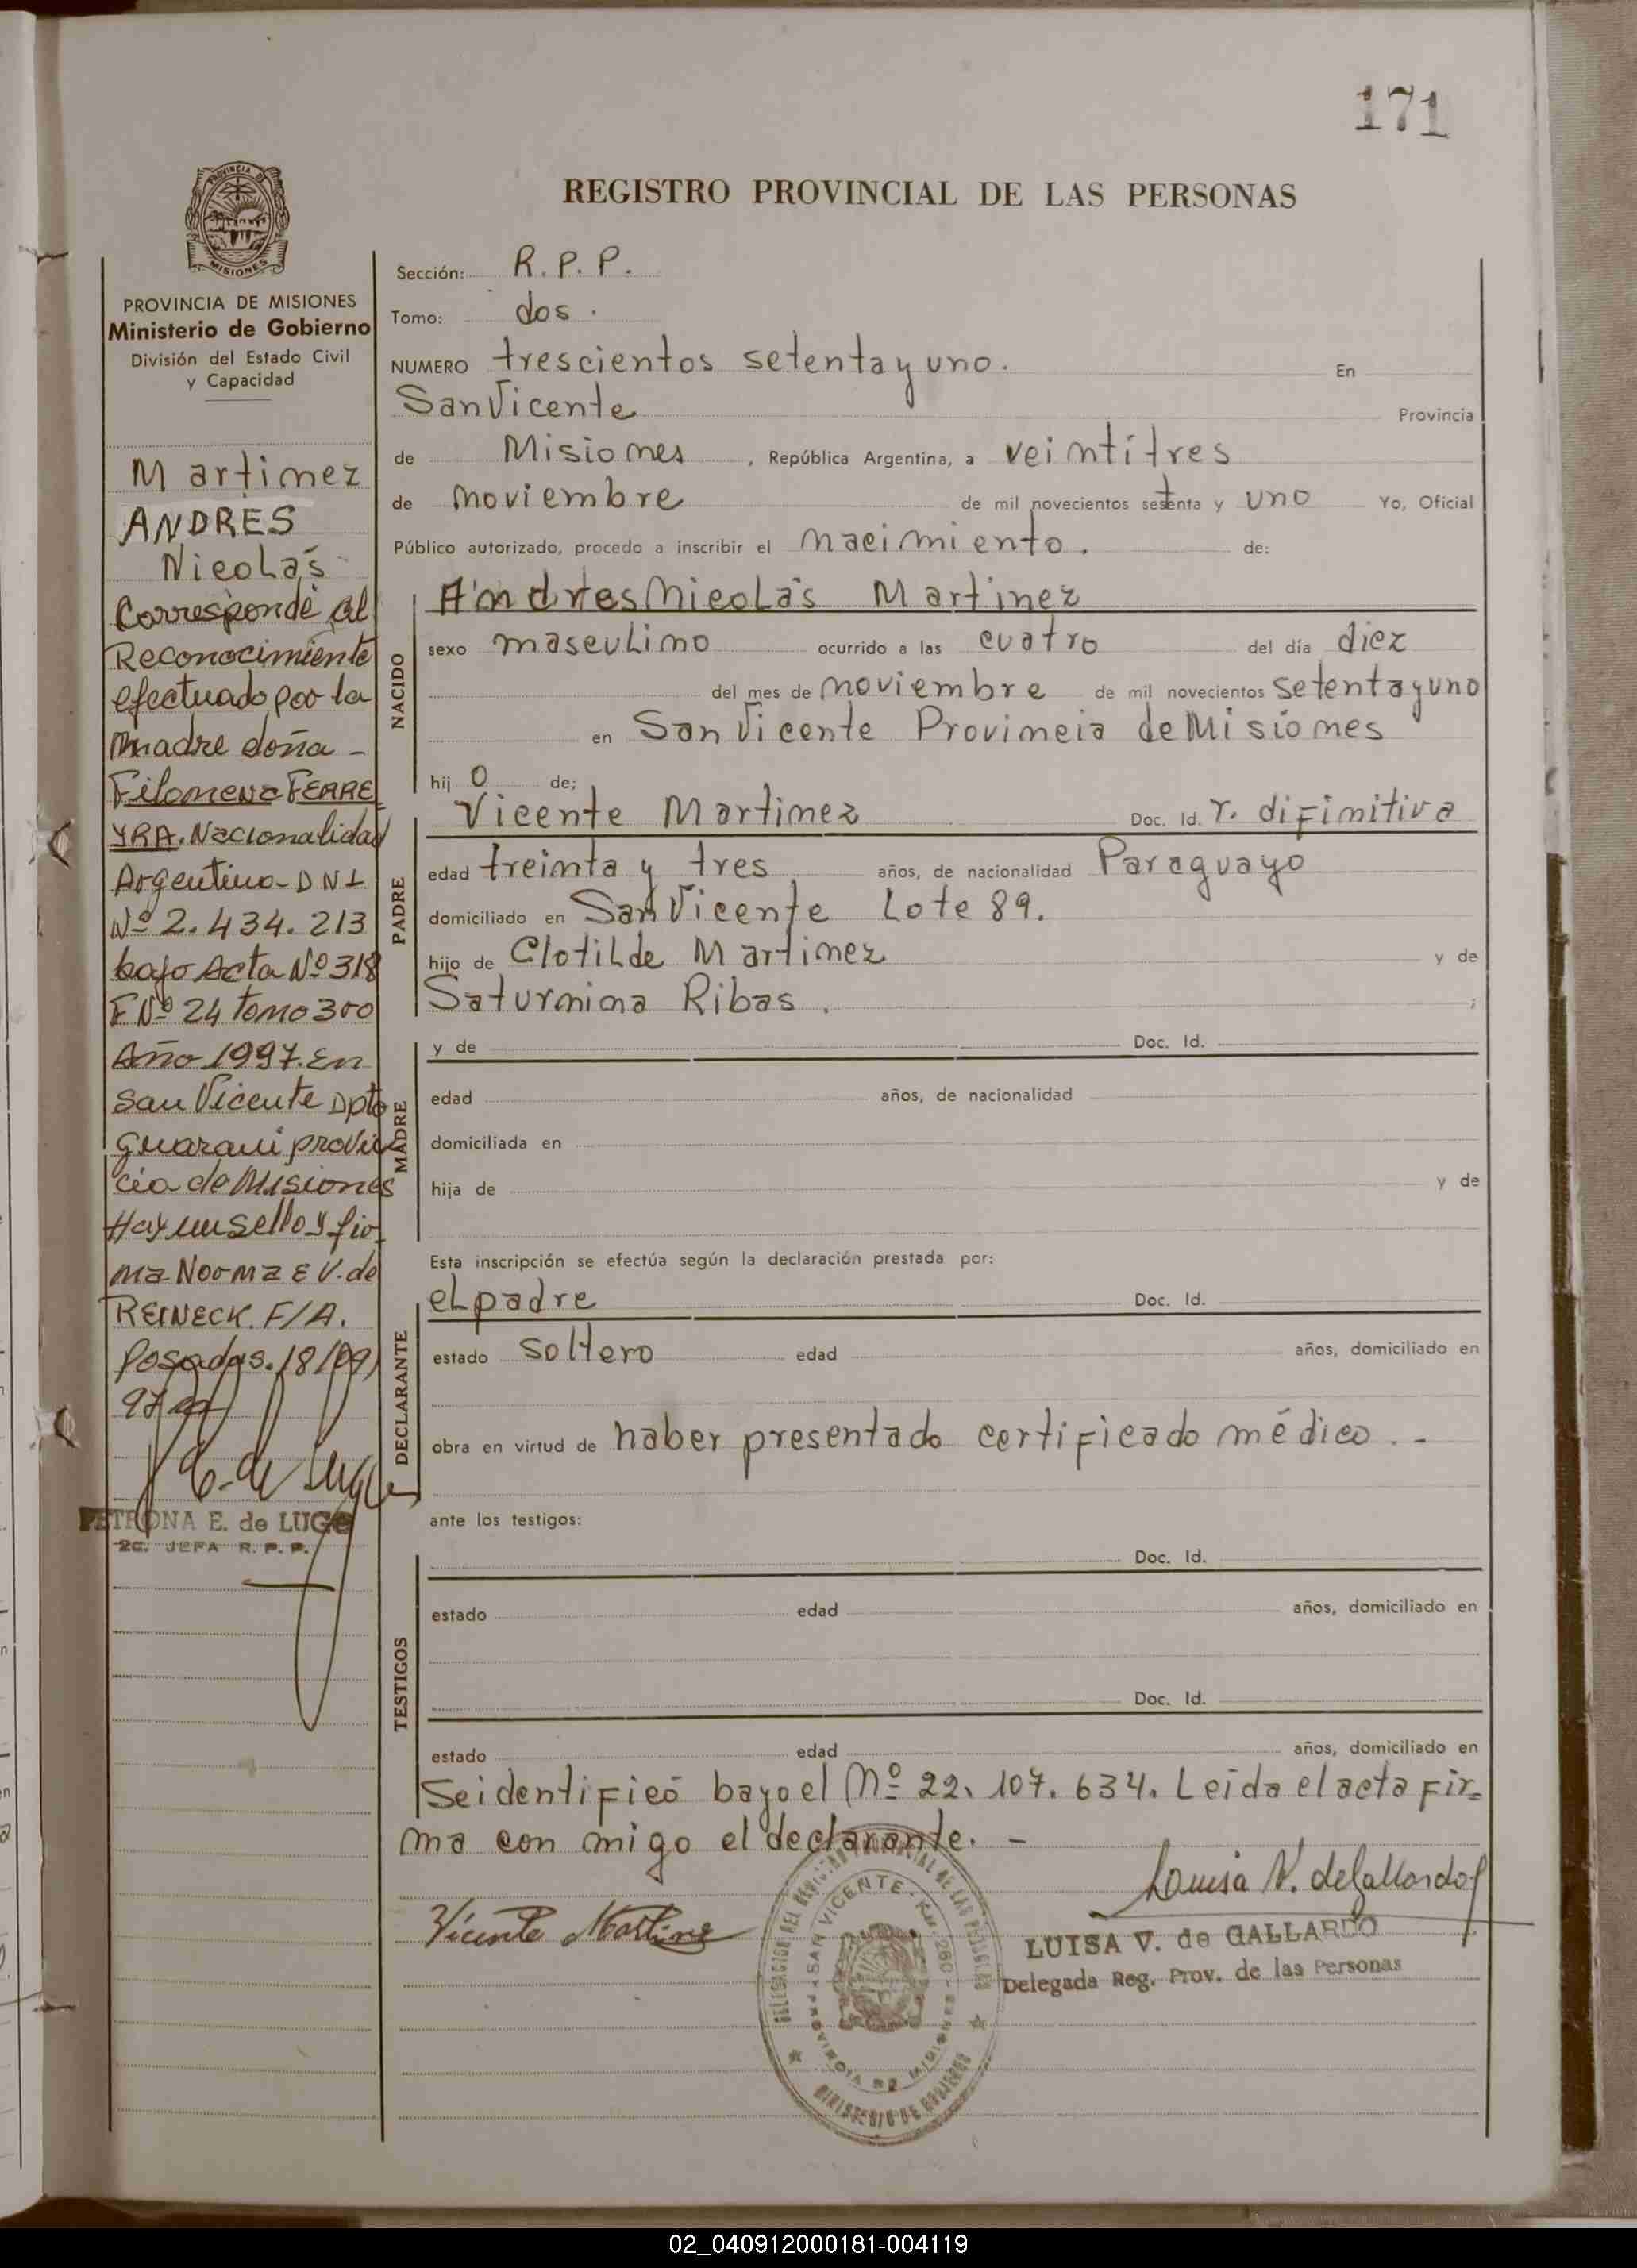 171
REGISTRO PROVINCIAL DE LAS PERSONAS
PROVINCIA DE MISIONES
PROVINCIA DE MISIONES
Ministerio de Gobierno
División del Estado Civil
y Capacidad
Martinez
ANDRES
Nicolás
Corresponde al
Reconocimiento
efectuado por la
madre doña -
Filomena FERRE
YRA. Nacionalidad
Argentina - DNI
Nº 2.434.213
bajo Acta Nº 318
F Nº 24 tomo 300
Año 1997. En
San Vicente Dpto
Guarani provin
cia de Misiones
Hay un sello y fir
ma Norma E V. de
REINECK. F/A.
Posadas. 18/09/
97
PETRONA E. de LUGO
2a. JEFA R. P. P.
Sección: R. P. P.
Tomo: dos .
NUMERO trescientos setenta y uno. En
San Vicente Provincia
de Misiones , República Argentina, a veintitres
de noviembre de mil novecientos setenta y uno Yo, Oficial
Público autorizado, procedo a inscribir el nacimiento . de:
NACIDO
Andres Nicolás Martinez
sexo masculino ocurrido a las cuatro del día diez
del mes de noviembre de mil novecientos setenta y uno
en San Vicente Provincia de Misiones
hij o de;
PADRE
Vicente Martinez Doc. Id. r. difinitiva
edad treinta y tres años, de nacionalidad Paraguayo
domiciliado en San Vicente Lote 89.
hijo de Clotilde Martinez y de
Saturnina Ribas . ;
MADRE
y de Doc. Id.
edad años, de nacionalidad
domiciliada en
hija de y de
Esta inscripción se efectúa según la declaración prestada por:
DECLARANTE
el padre Doc. Id.
estado soltero edad años, domiciliado en
obra en virtud de haber presentado certificado médico . -
ante los testigos:
TESTIGOS
Doc. Id.
estado edad años, domiciliado en
Doc. Id.
estado edad años, domiciliado en
Se identificó bayo el Nº 22. 107. 634. Leida el acta fir=
ma con migo el declarante. -
Vicente Martinez
Luisa V. de Gallardo
LUISA V. de GALLARDO
Delegada Reg. Prov. de las Personas
DELEGACION DEL REGISTRO PROVINCIAL DE LAS PERSONAS
SAN VICENTE - R.N. 260 - PROVINCIA DE MISIONES
MINISTERIO DE GOBIERNO
02_040912000181-004119